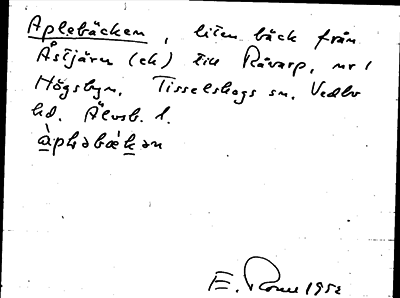 Aplebäcken, liten bäck från
Åstjärn (ek) till Råvarp, nr 1
Högsbyn, Tisselskogs sn, Vedbo
hd. Älvsb. l.
àpləbækən
E. 1952